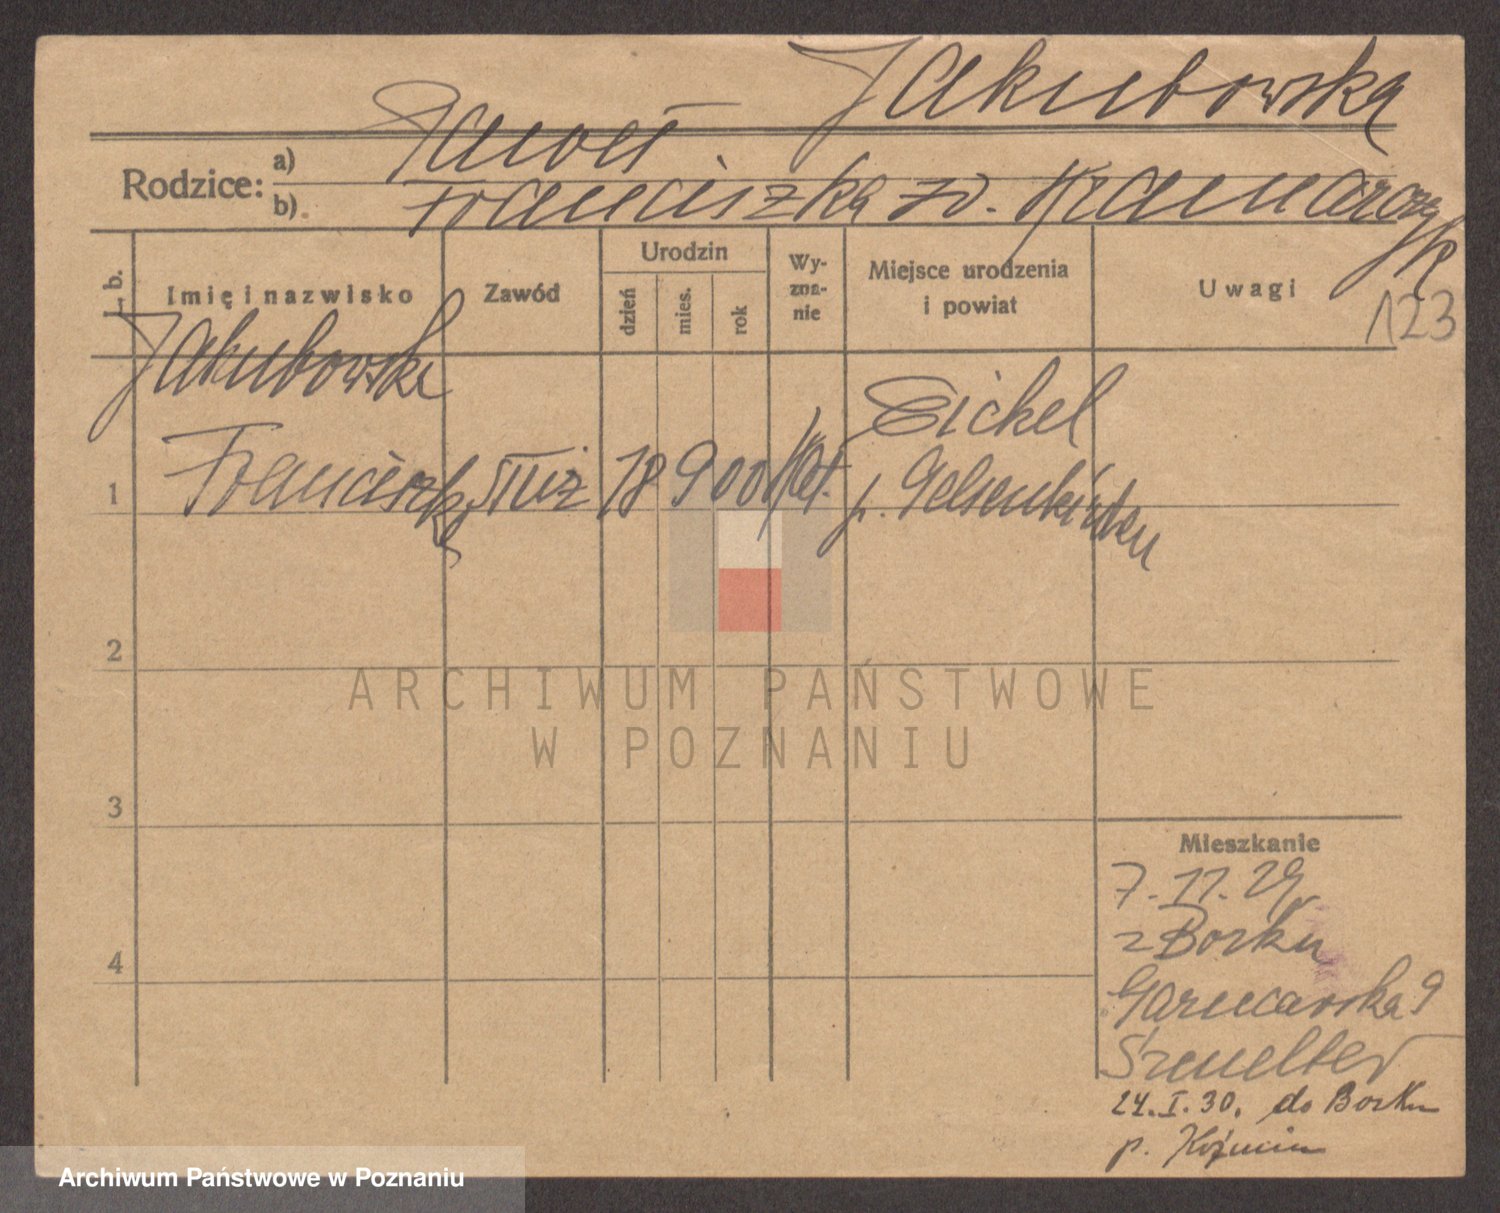 Jakubowska
Rodzice:
a) Paweł
b) Franciszka zd. Kramarczyk
L. b.
Imię i nazwisko
Zawód
Urodzin
dzień
mies.
rok
Wy-
zna-
nie
Miejsce urodzenia
i powiat
Uwagi
123
Jakubowski
1 Franciszek służ 18 9 00 Kat. Eickel
p. Gelsenkirchen
2
3
4
Mieszkanie
7.11.29
z Borku
Garncarska 9
Szmelter
24.I.30. do Borku
p. Koźmin
ARCHIWUM PAŃSTWOWE
W POZNANIU
Archiwum Państwowe w Poznaniu